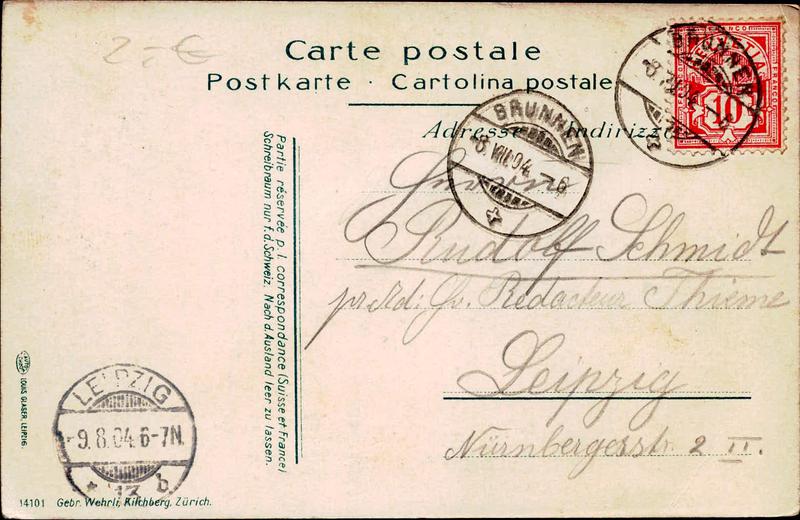 2.- €
Carte postale
Postkarte · Cartolina postale
Adresse Indirizzo
BRUNNEN
8. VIII. 04. -6
BRUNNEN
10
FRANCO
Rudolf Schmidt
Redacteur Thieme
Leipzig
Nürnbergerstr. 2 II.
Partie réservée p. l. correspondance (Suisse et France)
Schreibraum nur f. d. Schweiz. Nach d. Ausland leer zu lassen.
LOUIS GLASER, LEIPZIG.
LEIPZIG
9.8.04. 6-7N.
13 b
14101 Gebr. Wehrli, Kilchberg, Zürich.